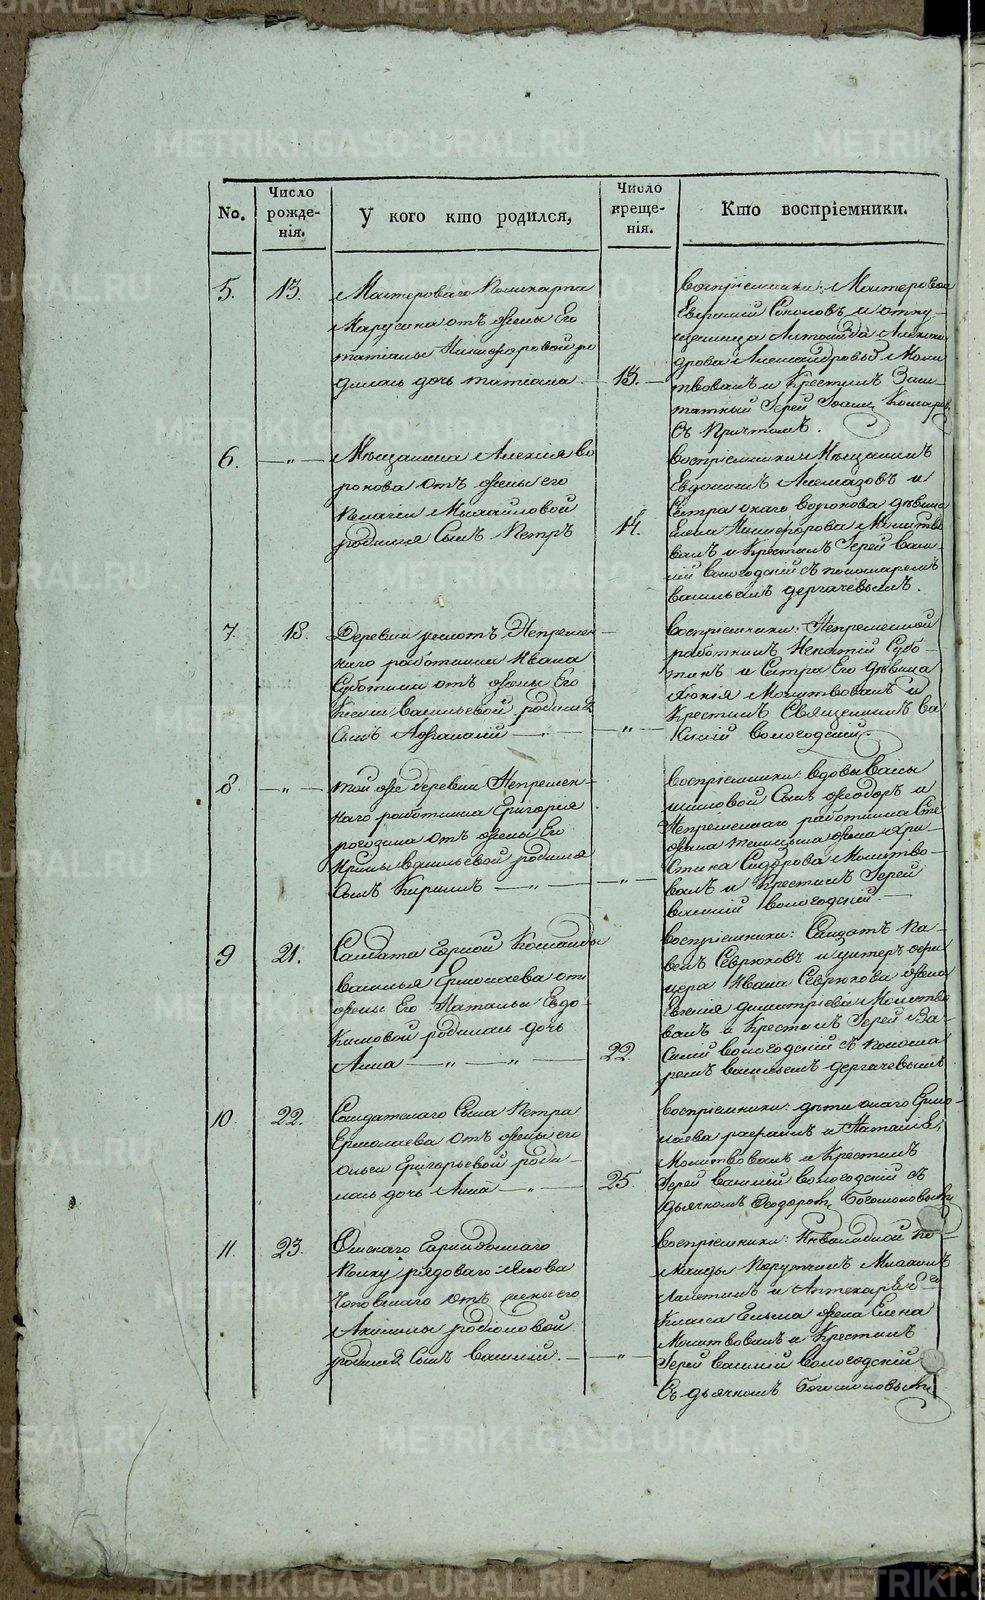 METRIKI.GASO-URAL.RU
No.
Число рожде-нія.
У кого кто родился,
Число креще-нія.
Кто воспріемники.
5.
13.
Мастероваго Поликарпа
Марусина отъ жены Его
татіаны Никифоровой ро
дилась дочь татіана.
13.
Воспріемники: Мастеровой
Евгений Соколовъ и
дрова Александровыхъ Моли
твовалъ и Крестилъ Заш
татный Іерей Іоаннъ
Съ Причтомъ.
6.
—„—
Мещанина Алексія Во
ронова отъ жены его
Пелагеи Михайловой
родился Сынъ Петръ
14.
Воспріемники Мещанинъ
Евдокимъ и
Сестра онаго Воронова девица
Никифорова Молитво
валъ и Крестилъ Іерей Васи
лій Вологодскій съ пономаремъ
Васильемъ дергачевымъ.
7.
18.
Деревни Непремен
наго работника Ивана
Суботина отъ жены Его
Васильевой родился
Сынъ Афанасій
„
Воспріемники: Непременной
работникъ Игнатій Субо-
тинъ и Сестра Его девица
Молитвовалъ и
Крестилъ Священникъ Ва
силій Вологодскій.
8.
—„—
той же деревни Непремен-
наго работника Григорія
рогозина отъ жены Его
Ирины Васильевой родился
Сынъ Кирилъ —„—
„
Воспріемники: вдовы
Сынъ Феодоръ и
Непременнаго работника Сте
фана жена Хри-
стина Сидорова Молитво-
валъ и Крестилъ Іерей
Василій Вологодскій.
9
21.
Салдата Горной Команды
Василья Ермолаева отъ
жены Его Натальи Евдо-
кимовой родилась дочь
Анна —„—„—
22.
Воспріемники: Салдатъ Па-
велъ Севрюковъ и унтеръ офи-
цера Ивана Севрюкова жена
Евгенія димитріева Молитво
валъ и Крестилъ Іерей Ва-
силій Вологодскій съ понома
ремъ Васильемъ дергачевымъ
10.
22.
Салдатскаго Сына Петра
Ермолаева отъ жены его
Ольги Григорьевой роди-
лась дочь Анна —„—
25.
Воспріемники: дети онаго Ермо-
лаева рафаилъ и Наталья,
Молитвовалъ и Крестилъ
Іерей Василій Вологодскій съ
дьячкомъ Феодоромъ Богомоловымъ
11.
23.
Омскаго Гарнизоннаго
Полку рядоваго Якова
отъ жены его
Акилины родіоновой
родился Сынъ Василій.
—„—
Воспріемники: Инвалидной ко-
манды Порутчикъ Михаилъ
и Аптекарь
Класса жена Елена
Молитвовалъ и Крестилъ
Іерей Василій Вологодскій
Съ дьячкомъ Богомоловымъ